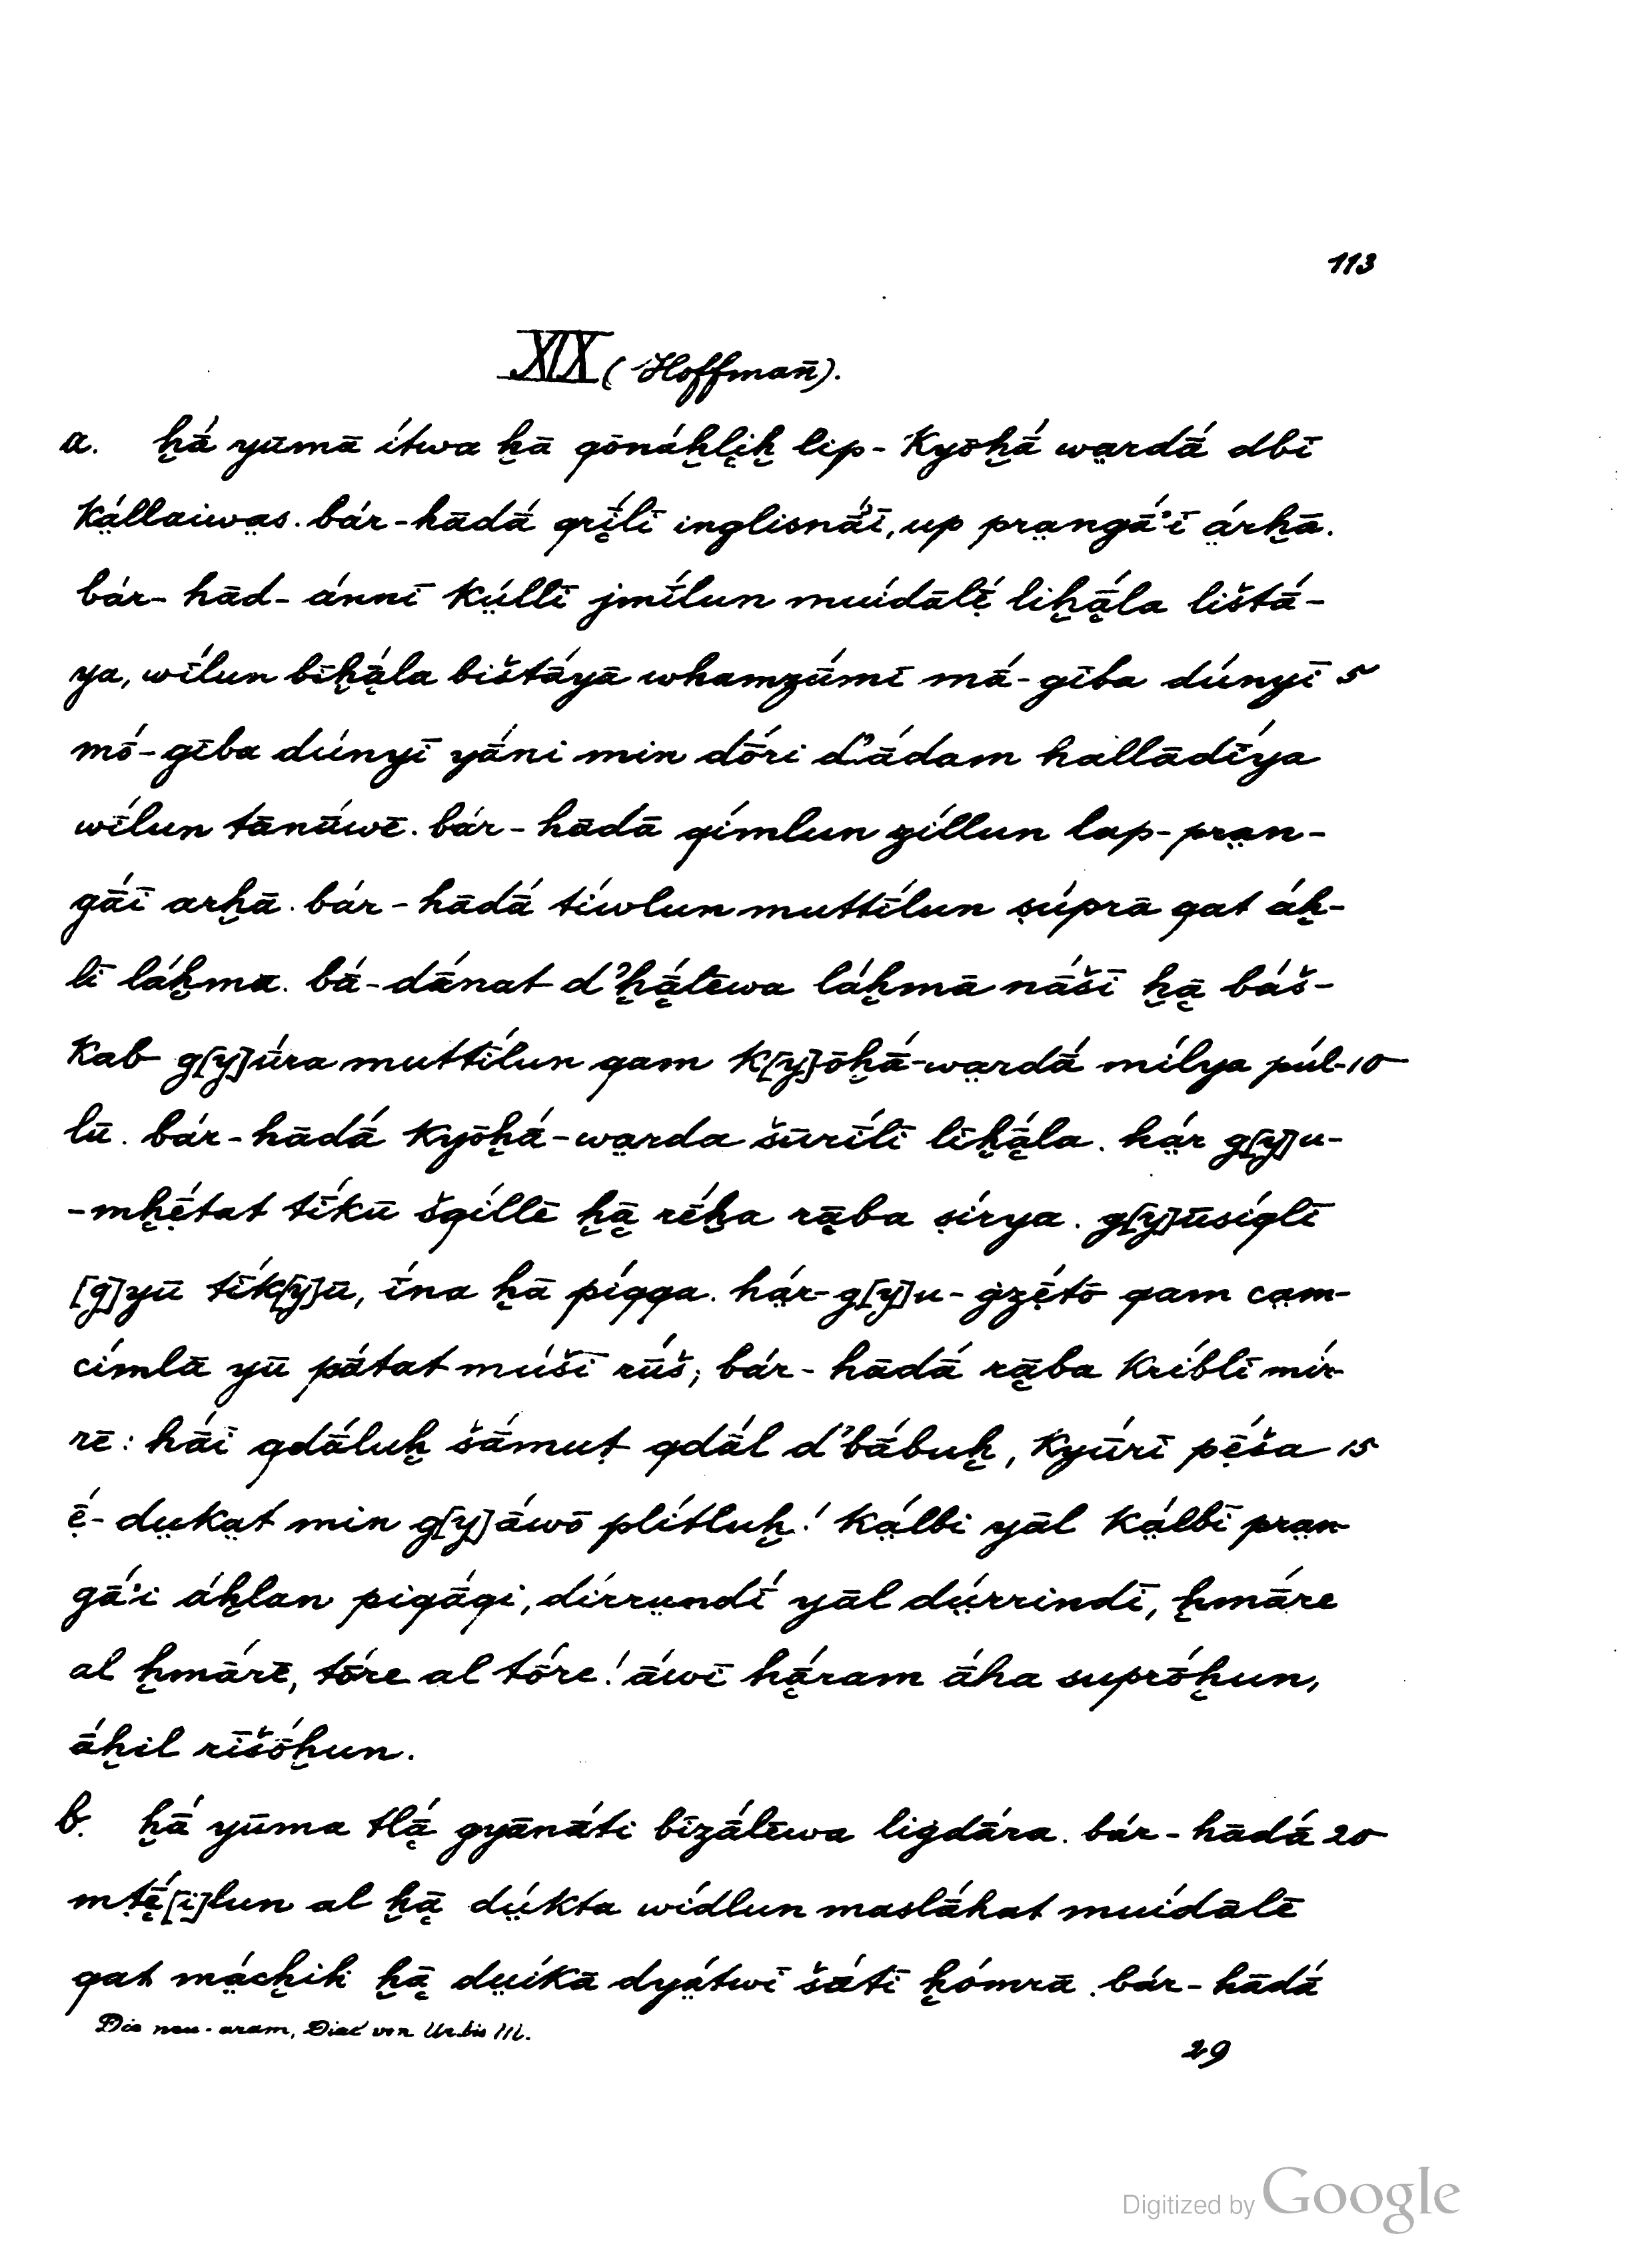 113
XIX (Hoffman̄).
a. ḫā́ yūmā ítwa ḫā qōnáḫlḭḫ lip-Kyōḫā́ wa̤rdā́ dbī
Ká̤llaiwa̤s. bár-hādā́ qrḛ́lī inglisnā́'ī, up pra̤ngā́'ī á̤rḫā.
bár-hād-ánnī Kṳ́llī jmī́lun muídālẹ́ liḫā̰́la lištā́-
ya, wī́lun bīḫā̰́la bištā́yā whamzū́mī mā́-gība dúnyī 5
mṓ-gība dúnyī yā́ni min dṓri d'ā́dam hallādī́ya
wī́lun tānū́wē. bár-hādā qímlun zíllun lap-pra̤n-
gā́ī arḫā. bár-hādā́ tíwlun muttī́lun ṣúprā qat áḫ-
lī láḫma. bā́-dā́nat d'ḫā̰́lēwa láḫmā nā́šī ḫā̰ báš-
Kab g[y]ū́ra muttī́lun qam K[y]ōḫā́-wa̤rdā́ mílya púl- 10
lū. bár-hādā́ Kyōḫā́-wa̤rda šūrī́lī līḫā̰́la. há̤r g[y]u-
-mḫẹ́tat tī́kū šqíllē ḫā̰ rḗḫa rā̰ba ṣírya. g[y]ūsíqlī
[g]yū tī́k[y]ū, ī́na ḫā píqqa. há̤r-g[y]u-ġzẹ́tō qam ca̤m-
címlā yū pā́tat múšī rūš; bár-hādā́ rā̰ba Kríblī mír-
rē: hā́ī qdā́luḫ šā́muṭ qdāl d'bā́buḫ, Kyū́rī pẹ́ša 15
ẹ̄́-dṳka̤t min g[y]ā́wō plítluḫ! Ká̤lbi yāl Ká̤lbī pra̤n-
gā́'i áḫlan piqā́qi, dírrṳndī́ yāl dṳ́rrindī, ḫmā́re
al ḫmā́rē, tṓre al tṓre! ā́wī hā̰́ram ā́ha suprṓḫun,
ā́ḫil rīšṓḫun.
b. ḫā́ yūma tlā̰́ gyānā́ti bīzā́lēwa liġdā́ra. bár-hādā́ 20
mṭḛ̄́[i]lun al ḫā̰ dṳ́kta wídlun maslā́hat muídālē
qat má̤cḫiḫ ḫā̰ dṳíkā dyá̤twī šā́tī ḫómrā. bár-hādā́
Die neu-aram. Dial von Ur. bis M.
29
Digitized by Google